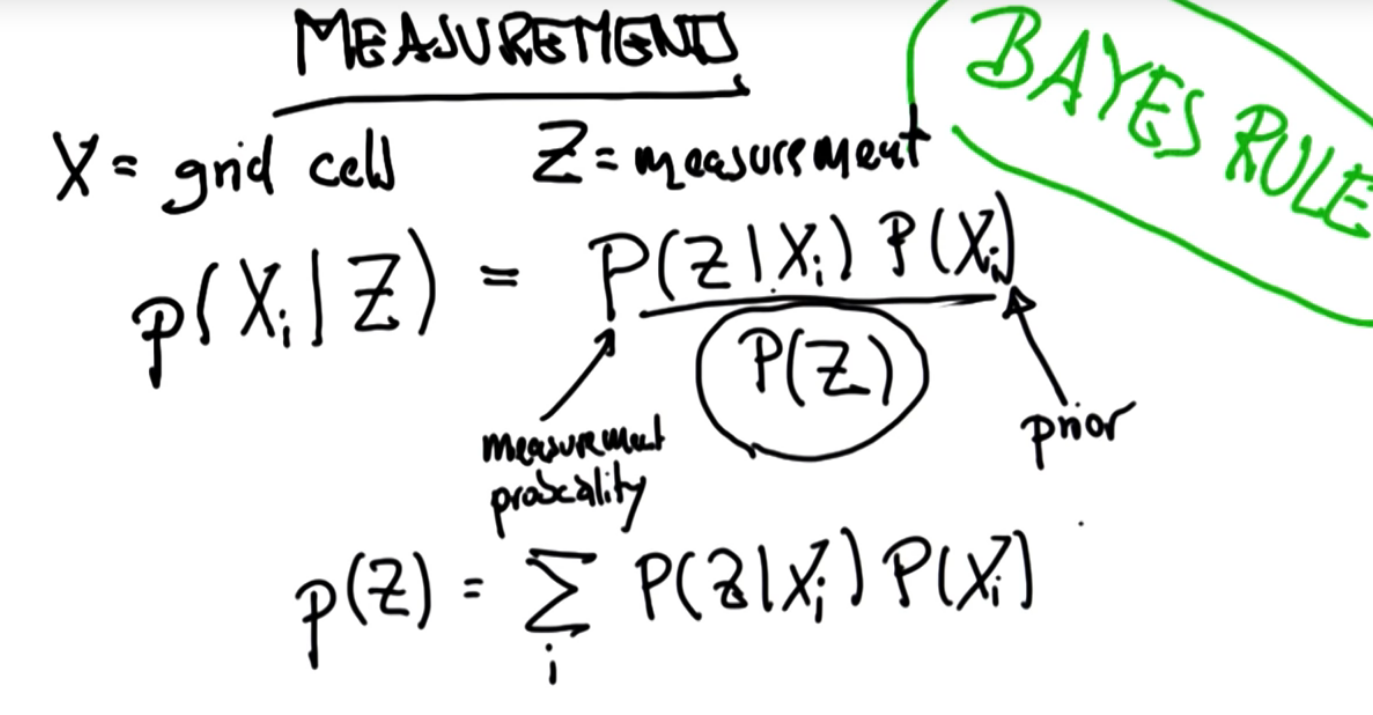 MEASUREMENTS
BAYES RULE
X = grid cell Z = measurement
p(Xi | Z) = P(Z | Xi) P(Xi)
P(Z)
measurement
probability
prior
p(Z) = Σ P(Z | Xi) P(Xi)
i